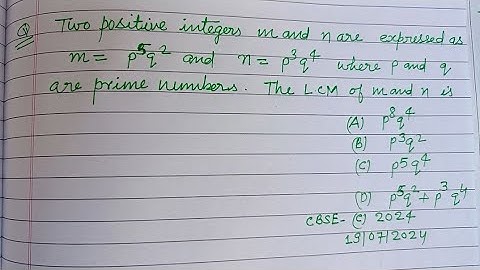 Q Two positive integers m and n are expressed as
m = p⁵q² and n = p³q⁴ where p and q
are prime numbers. The LCM of m and n is
(A) p⁸q⁴
(B) p³q²
(C) p⁵q⁴
(D) p⁵q² + p³q⁴
CBSE - (C) 2024
19/07/2024